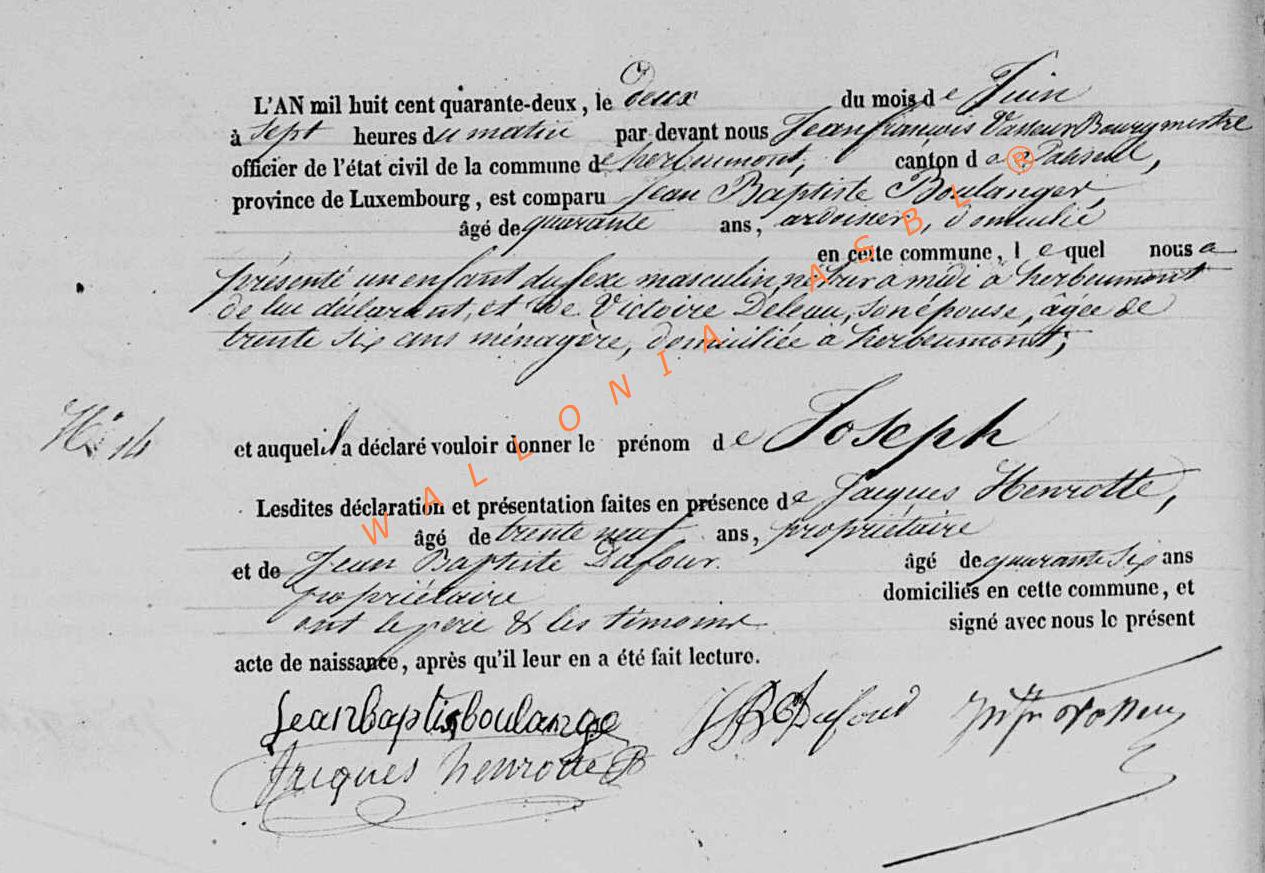 L'AN mil huit cent quarante-deux, le deux du mois de Juin
à sept heures du matin par devant nous Jean françois Vasseur Bourgmestre
officier de l'état civil de la commune de herbeumont, canton de Paliseul,
province de Luxembourg, est comparu Jean Baptiste Boulanger,
âgé de quarante ans, ardoisier, domicilié
en cette commune, le quel nous a
présenté un enfant du sexe masculin, né hier à midi à herbeumont
de lui déclarant, et de Victoire Deleau, son épouse, âgée de
trente six ans ménagère, domiciliée à herbeumont;
et auquel il a déclaré vouloir donner le prénom de Joseph
Lesdites déclaration et présentation faites en présence de Jacques Henrotte,
âgé de trente neuf ans, propriétaire
et de Jean Baptiste Dufour. âgé de quarante six ans
propriétaire domiciliés en cette commune, et
ont le père & les témoins signé avec nous le présent
acte de naissance, après qu'il leur en a été fait lecture.
jean baptis boulange JB Dufour
Jacques henrotte
WALLONIA ASBL ®